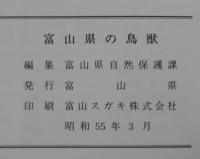 富山県の鳥獣
編集 富山県自然保護課
発行 富山県
印刷 富山スガキ株式会社
昭和55年3月